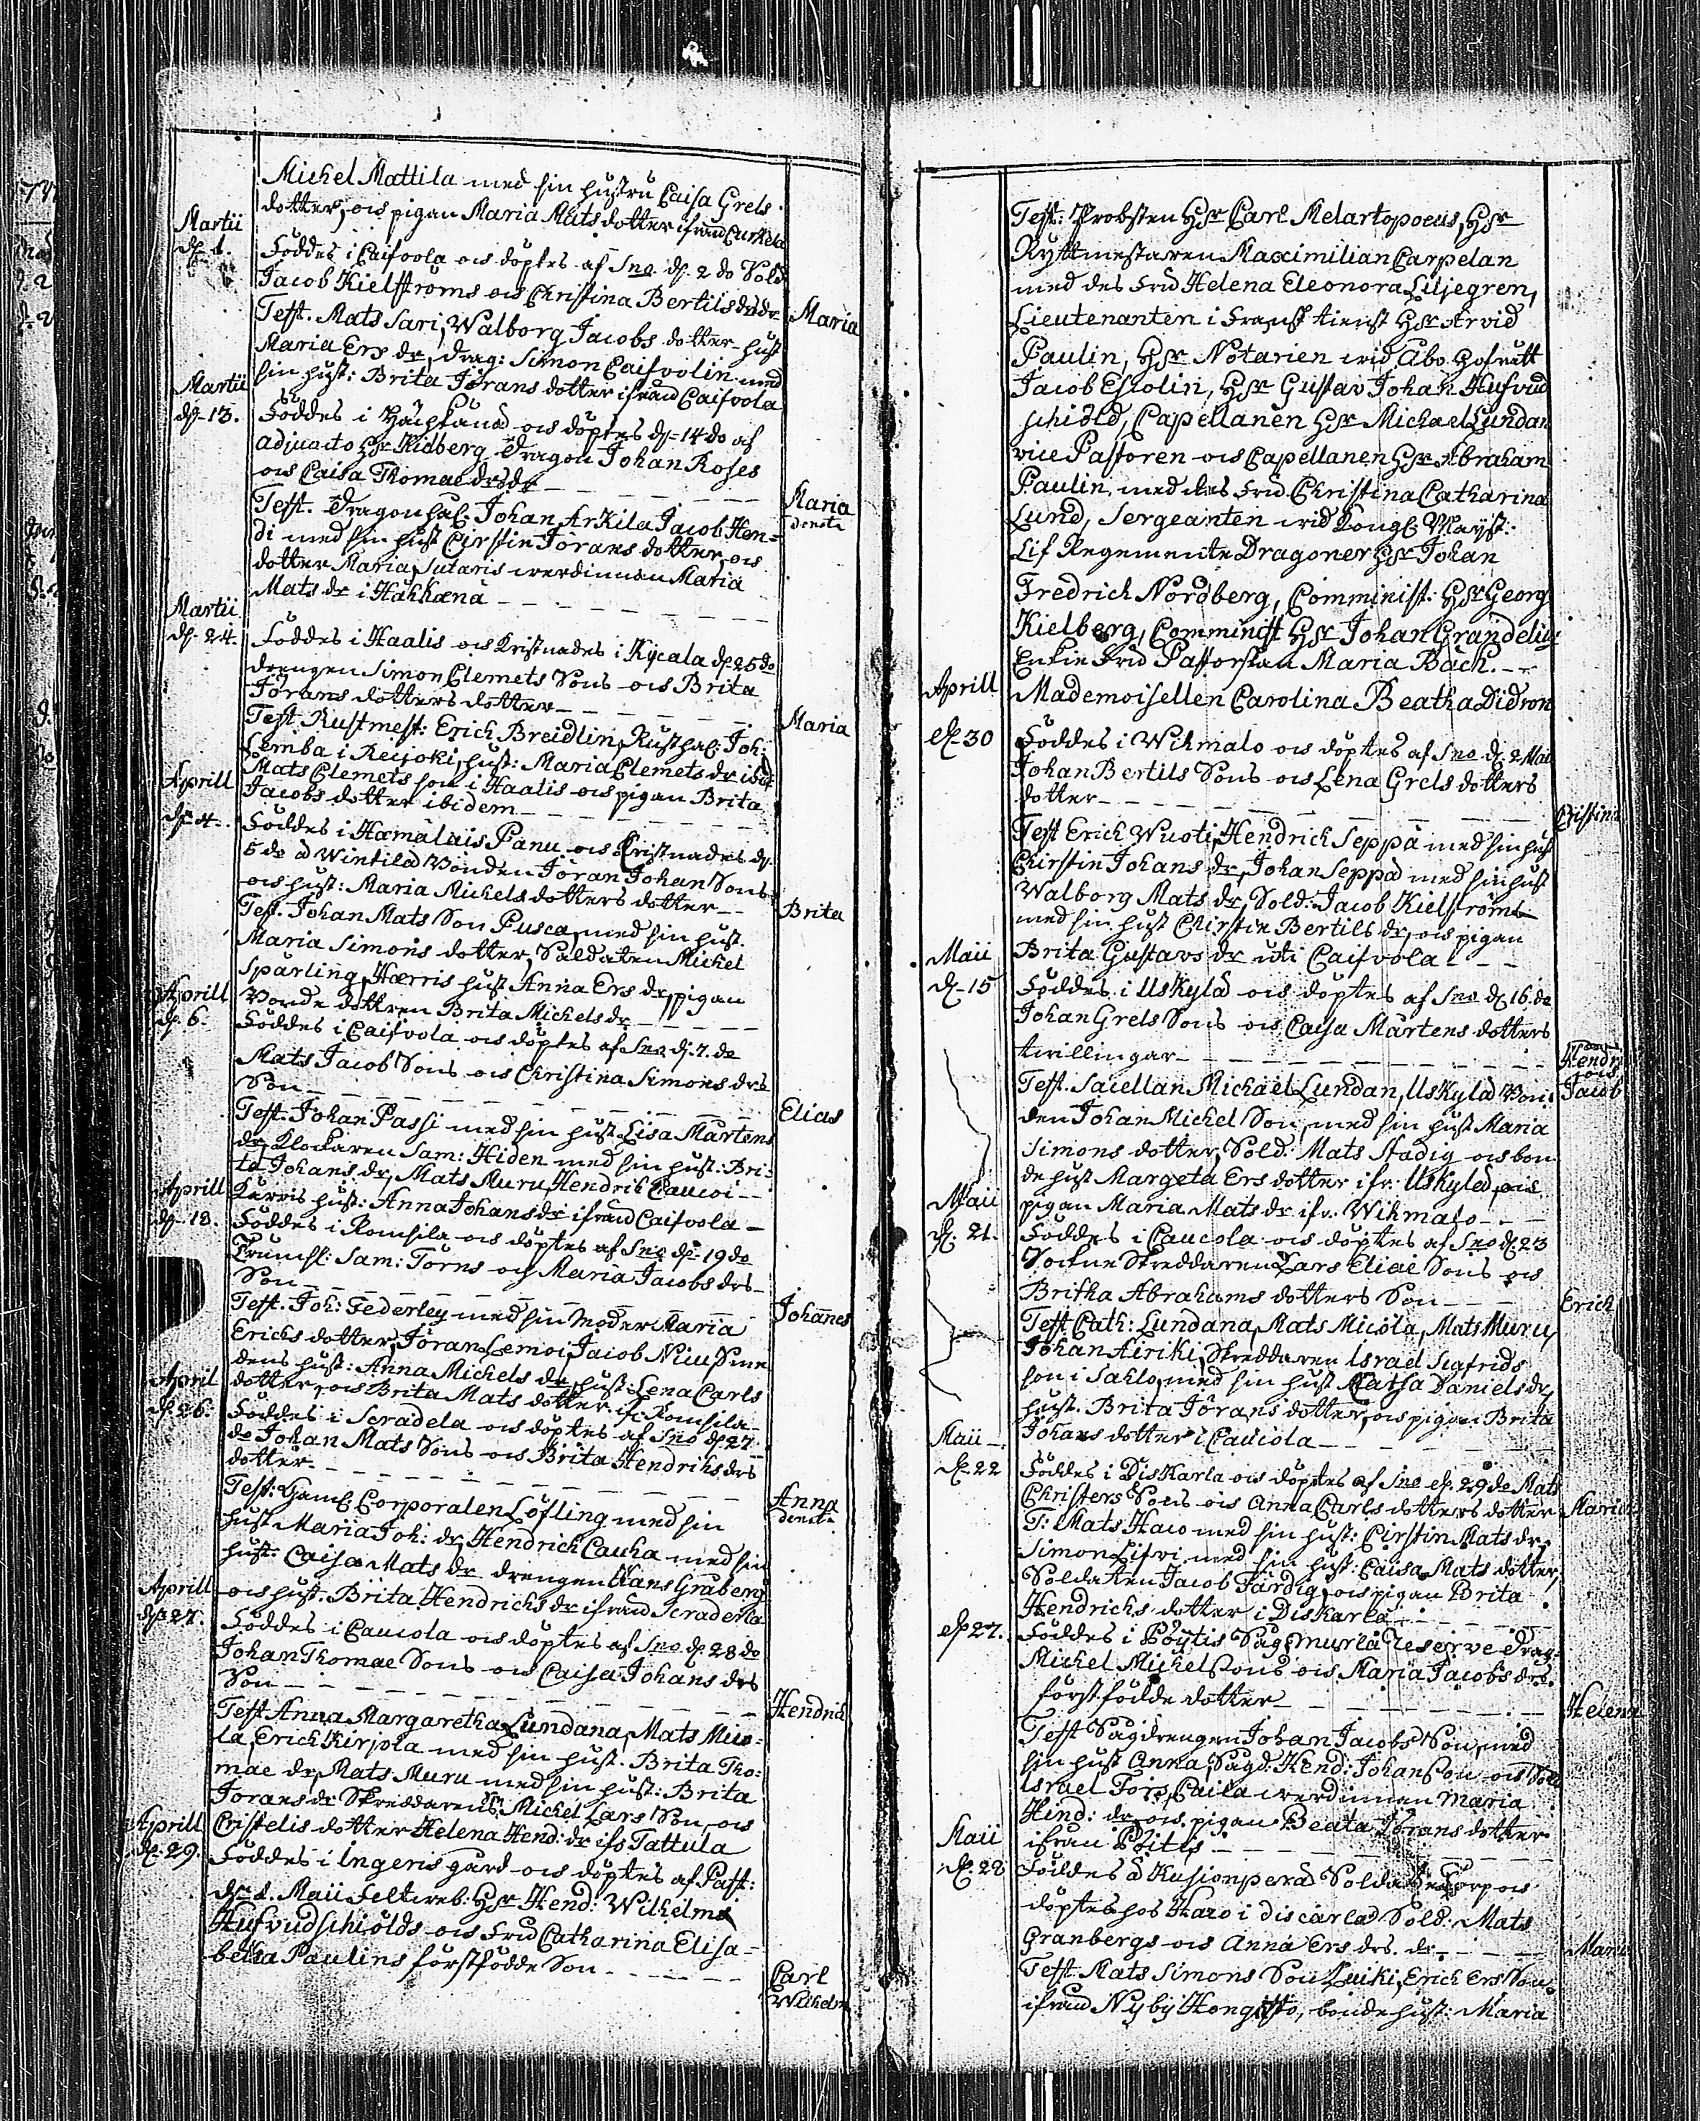 Michel Mattila med sin hustru Caisa Grels
dotter, och pigan Maria Mats dotter ifrån Curkela
Martii
d. 1.
Föddes i Caifvola och döptes af Sno d. 2 do Sold
Jacob Kielströms och Christina Bertils drs dr
Maria
Test. Mats Sari, Walborg Jacobs dotter hust
Maria Ers dr, Drag: Simon Caifvolin med
sin hust: Brita Jörans dotter ifrån Caifvola
Martii
d. 13.
Föddes i och döptes d. 14 do af
adjuncto Hr Kidberg Dragon Johan Roses
och Caisa Thomae drs dr
Maria
denata
Test. Dragon Johan Arkila Jacob Hen-
di med sin hust Cirstin Jörans dotter, och
dotter Maria, Sutaris werdinnan Maria
Mats dr i Hakkæna
Martii
d. 24.
Föddes i Haalis och Kristnades i Kycala d. 25 do
drengen Simon Clemets Sons och Brita
Jörans dotters dotter
Maria
Test. Rustmest: Erich Breidlin, Rusth: Joh:
Lemba i Reijoki, hust: Maria Clemets dr ibid
Mats Clemets son i Haalis och pigan Brita
Jacobs dotter ibidem
Aprill
d. 4.
Föddes i Hæmälais Panu och Cristnades d.
5 do å Wintilä Bonden Jöran Johan Sons
och hust: Maria Michels dotters dotter
Brita
Test. Johan Mats Son Pusca, med sin hust.
Maria Simons dotter, Soldaten Michel
Sparling, Hærris hust Anna Ers dr, pigan
Bonde dottren Brita Michels dr
Aprill
d. 6.
Föddes i Caifvola och döptes af Sno d. 7. do
Mats Jacob Sons och Christina Simons drs
Son
Elias
Test. Johan Passi med sin hust. Lisa Mårtens
dr, Klockaren Sam: Hiden med sin hust: Bri-
ta Johans dr, Mats Muru, Hendrich Caucoi
Kurris hust: Anna Johans dr ifrån Caifvola
Aprill
d. 18.
Föddes i Romsila och döptes af Sno d. 19 do
Trumsl: Sam: Törns och Maria Jacobs drs
Son
Johannes
Test. Joh: Federley med sin Moder Maria
Erichs dotter, Jöran Lemoi, Jacob Nicu, Sme
dens hust: Anna Michels dr, hust: Lena Carls
dotter, och Brita Mats dotter if: Romsila
April
d. 26.
Föddes i Seradela och döptes af Sno d. 27
do Johan Mats Sons och Brita Hendrichs drs
dotter
Anna
denata
Test: Gaml Corporalen Löfling med sin
hust Maria Joh: dr, Hendrich Cauha med sin
hust: Caisa Mats dr drengen Hans Gråberg
och hust. Brita Hendrichs dr ifrån Seradela
Aprill
d. 27.
Föddes i Caucola och döptes af Sno d. 28 do
Johan Thomae Sons och Caisa Johans drs
Son
Hendrich
Test Anna Margaretha Lundana, Mats Mico-
la, Erich Kirjola med sin hust. Brita Tho-
mae dr, Mats Muru med sin hust: Brita
Jorans dr Skreddarens, Michel Lars Son, och
Cristelis dotter Helena Hend: dr ifr Tattula
Aprill
d. 29.
Föddes i Ingeris gård och döptes af Past:
d. 1. Maii Feltweb: Hr Hend: Wilhelms
Hufvudschiölds och Fru Catharina Elisa-
betha Paulins förstfödde Son
Carl
Wilhelm
Test: Probsten Hr Carl Melartopoeus, Hr
Ryttmestaren Maximilian Carpelan
med des Fru Helena Eleonora Liljegren,
Lieutenanten i Fransk tienst Hr Arvid
Paulin, Hr Notarien wid Åbo Hofrätt
Jacob Estolin, Hr Gustav Johan Hufvud
schiöld, Capellanen Hr Michael Lundan
vice Pastoren och Capellanen Hr Abraham
Paulin, med des Fru Christina Catharina
Lund, Sergeanten wid Kongl Mayst:
Lif Regemente Dragoner Hr Johan
Fredrich Nordberg, Comminist: Hr Georg
Kielberg, Comminist Hr Johan Grandelius
Enkie Fru Pastorskan Maria Bäck.
Mademoisellen Carolina Beatha Didron
Aprill
d. 30
Föddes i Wihmalo och döptes af Sno d. 2 Maii
Johan Bertils Sons och Lena Grels dotters
dotter
Cristina
Test Erich Wuoti, Hendrich Seppä med sin hust
Chirstin Johans dr, Johan Seppä med sin hust
Walborg Mats dr, Sold: Jacob Kielströms
med sin hust Chirstin Bertils dr, och pigan
Brita Gustavs dr uti Caifvola
Maii
d. 15
Föddes i Uskylä och döptes af Sno d. 16. do
Johan Grels Sons och Caisa Mårtens dotters
twillingar
Hendr
och
Jacob
Test. Sacellan Michaël Lundan, Uskylä Bon-
den Johan Michel Son med sin hust Maria
Simons dotter, Sold: Mats Stadig och bon
de hust Margeta Ers dotter ifr: Uskylä, och
pigan Maria Mats dr ifr. Wihmalo
Maii
d. 21.
Föddes i Caucola och döptes af Sno d. 23
Sockne Skreddaren Lars Eliae Sons och
Britha Abrahams dotters Son
Erich
Test Cath: Lundana, Mats Micola, Mats Muru,
Johan Heiriki, Skreddaren Israel Sigfrids
son i Sahlo, med sin hust Caisa Daniels dr,
hust. Brita Jörans dotter, och pigan Brita
Johans dotter i Caucola
Maii
d. 22
Föddes i Diskarla och döptes af Sno d. 29 do Mats
Christers Sons och Anna Carls dotters dotter
Maria
T: Mats Haco med sin hust: Cirstin Mats dr,
Simon Lifvi med sin hust: Caisa Mats dotter,
Soldaten Jacob Färdig, och pigan Brita
Hendrichs dotter i Diskarla
d. 27.
Föddes i Pöytis Såg murla Reserve Drag:
Michel Michelsons och Maria Jacobs drs.
förstfödde dotter
Helena
Test Sågdrengen Johan Jacobs Son, med
sin hust Anna, Sågd: Hend: Johan Son och Sold
Israel Fors, Caila werdinnan Maria
Hind: dr, och pigan Beata Jörans dotter
ifrån Pöitis
Maii
d. 28
Föddes å Kusionperä Soldate Torp och
döptes hos Haro i discarla Sold: Mats
Granbergs och Anna Ers drs. dr
Maria
Test. Mats Simons Son Luiki, Erich Ers Son
ifrån Nyby Hongisto, bonde hust: Maria